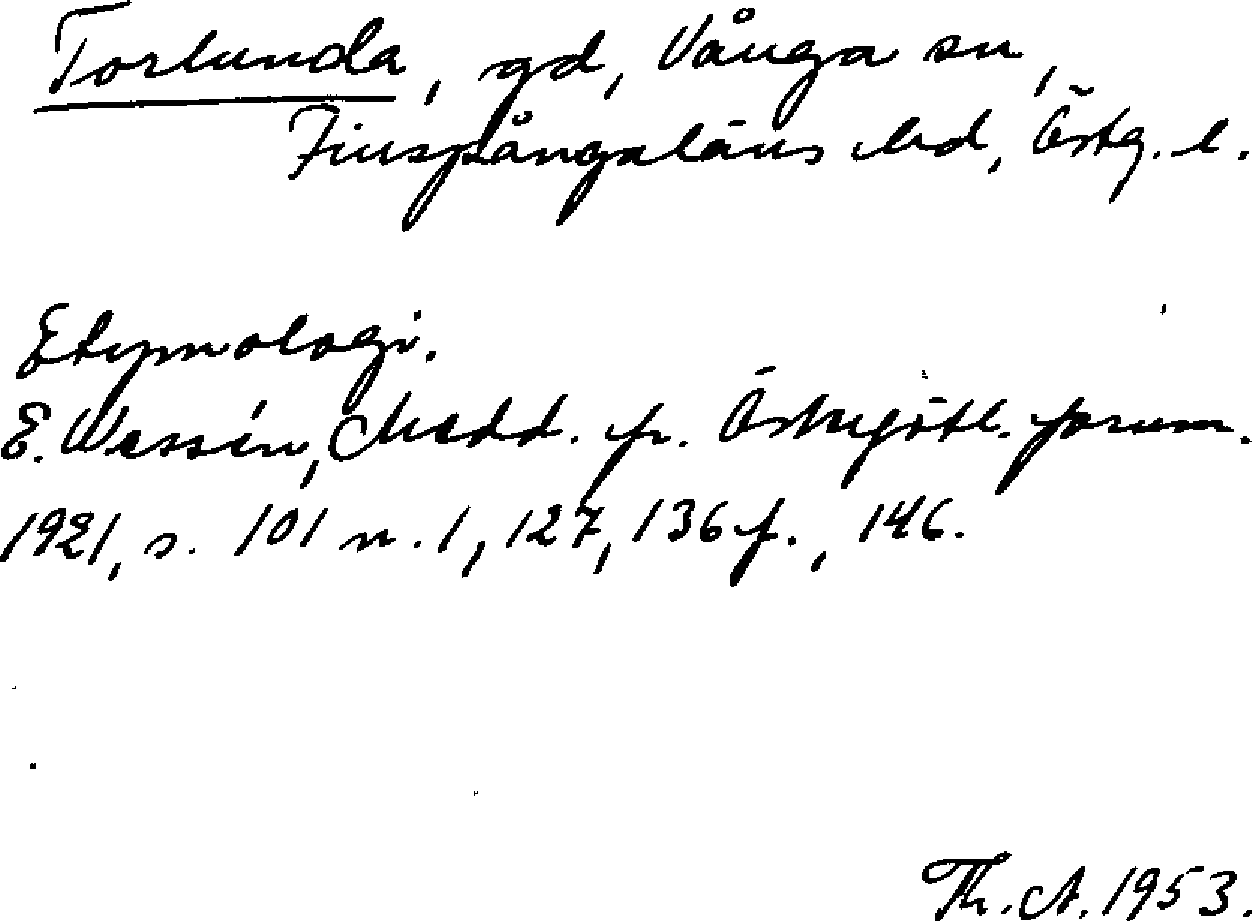 Torlunda, gd, Vånga sn,
Finspångaläns hd, Östg. l.
Etymologi.
E. Wessén, Medd. fr. Östergötl. fornm.
1921, s. 101 n. 1, 127, 136 f., 146.
Th. A. 1953.